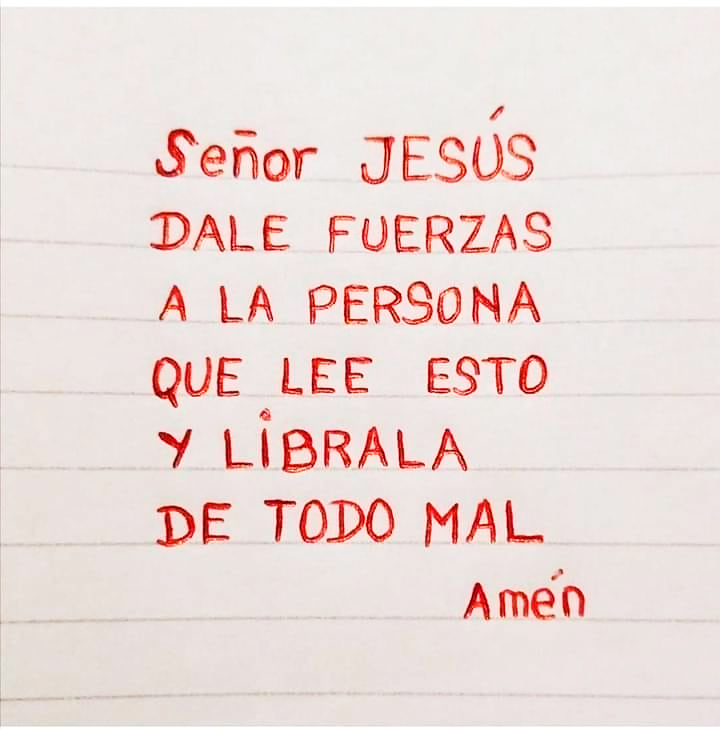 Señor JESÚS
DALE FUERZAS
A LA PERSONA
QUE LEE ESTO
Y LiBRALA
DE TODO MAL
Amén